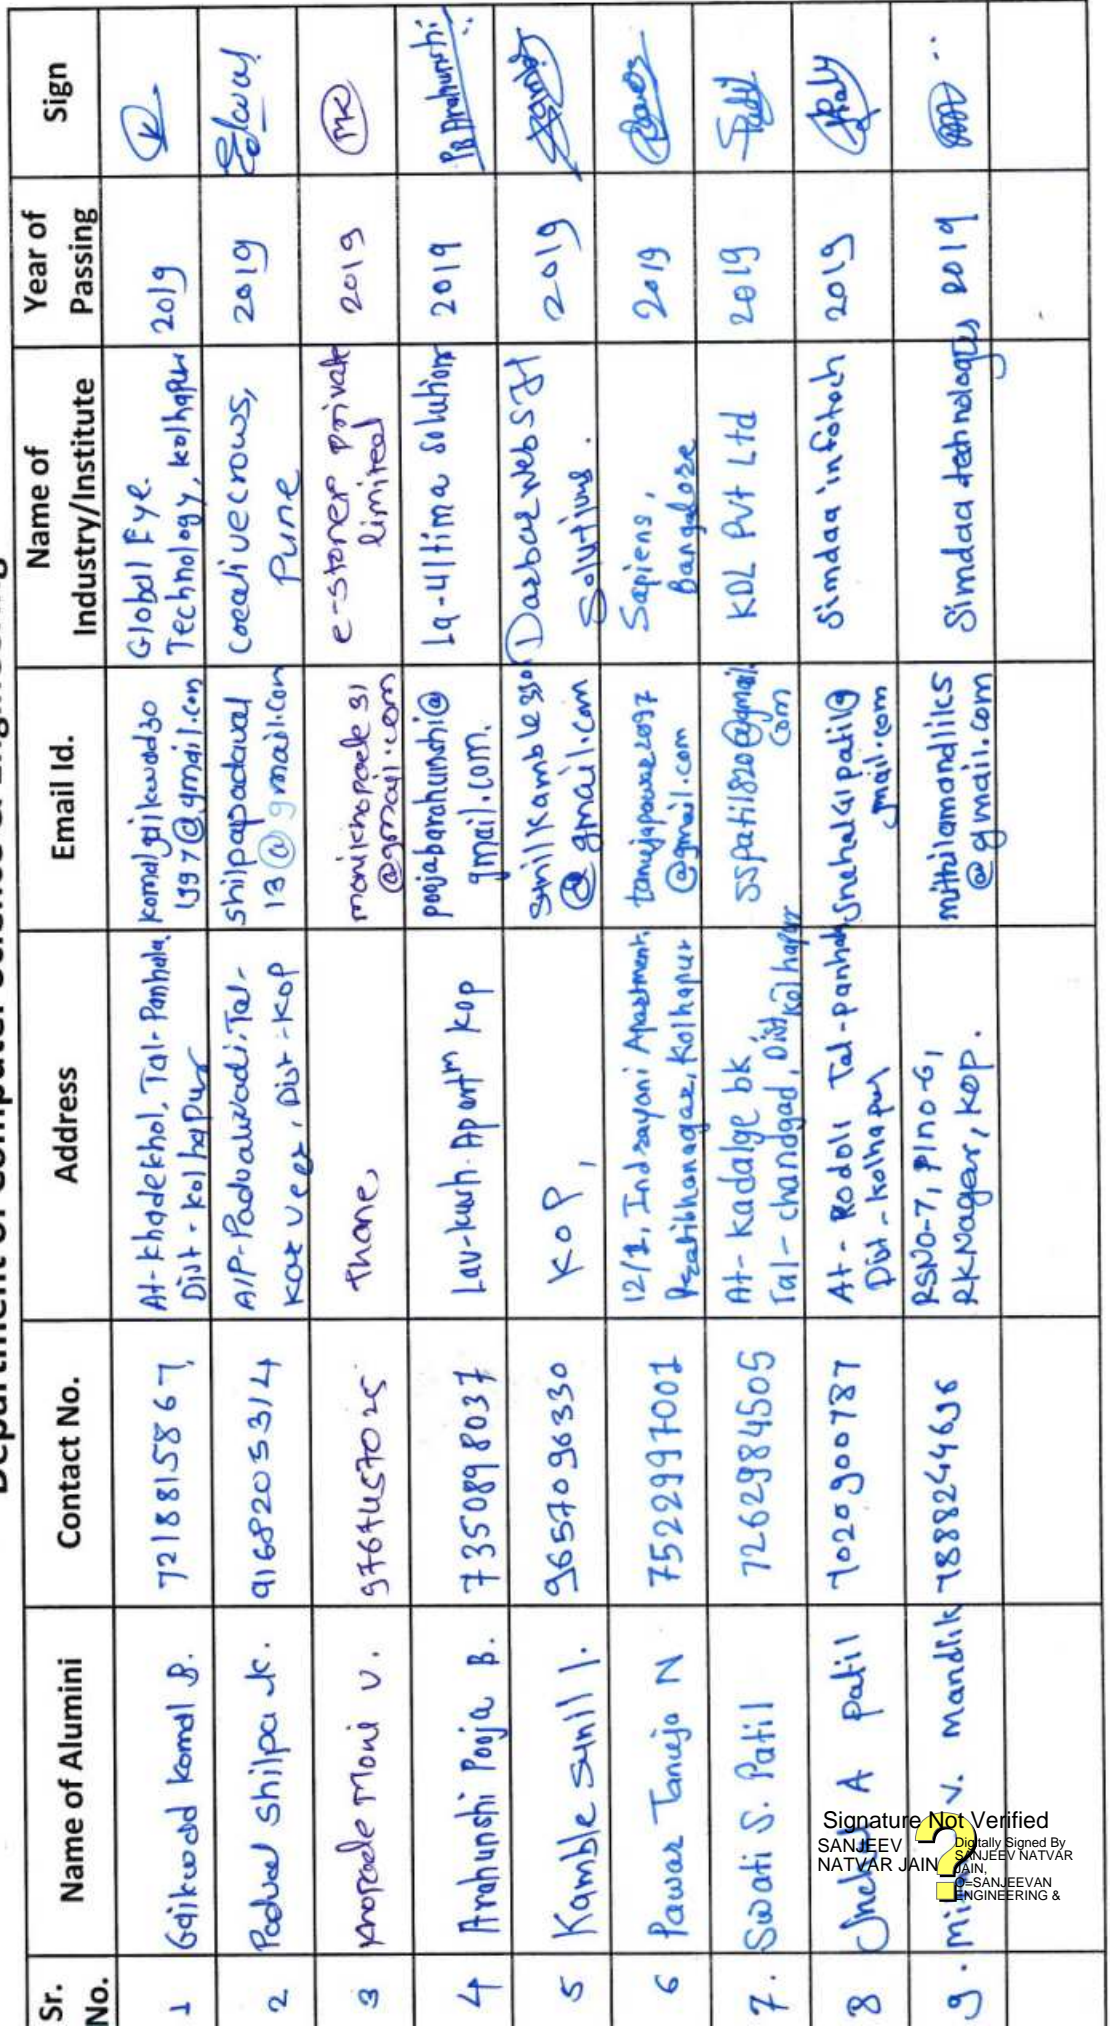 Department of Computer Science & Engineering
Sr. No. Name of Alumini Contact No. Address Email Id. Name of Industry/Institute Year of Passing Sign
1 Gaikwad Komal B. 7218815867, At-Khadekhol, Tal-Panhala, Dist-Kolhapur komalgaikwad30 1997@gmail.com Global Eye Technology, Kolhapur 2019
2 Padval Shilpa K. 9168205314 A/P-Padvalwadi, Tal-Karveer, Dist-KOP shilpapadaval 13@gmail.com Creativecrows, Pune 2019
3 Khopade Moni V. 9767457025 Thane, monikhopade31 @gmail.com e-stoner private limited 2019
4 Arahunshi Pooja B. 7350898037 Lav-kush Apartm KOP poojabarahunshi@ gmail.com. Iq-ultima solutions 2019 PBArahunshi
5 Kamble Sunil I. 9657096330 KOP, sunilkamble330 @gmail.com Darbar Web Soft Solutions. 2019
6 Pawar Tanuja N 7522997001 12/1, Indrayani Apartment, Pratibhanagar, Kolhapur tanujapawar2097 @gmail.com Sapiens, Bangalore 2019
7. Swati S. Patil 7262984505 At-Kadalge bk Tal-chandgad, Dist Kolhapur sspatil820@gmail. com KDL Pvt Ltd 2019 SPatil
8 Snehal A Patil 7020900787 At-Rodoli Tal-panhala Dist-Kolhapur SnehalG1patil@ gmail.com Simdaa infotech 2019
9. V. Mandlik 7888244696 RSNO-7, Plno-6, RKNagar, KOP. mithilamandlik5 @gmail.com Simdaa technologies 2019
Signature Not Verified
SANJEEV
NATVAR JAIN
Digitally Signed By
SANJEEV NATVAR
JAIN,
O=SANJEEVAN
ENGINEERING &